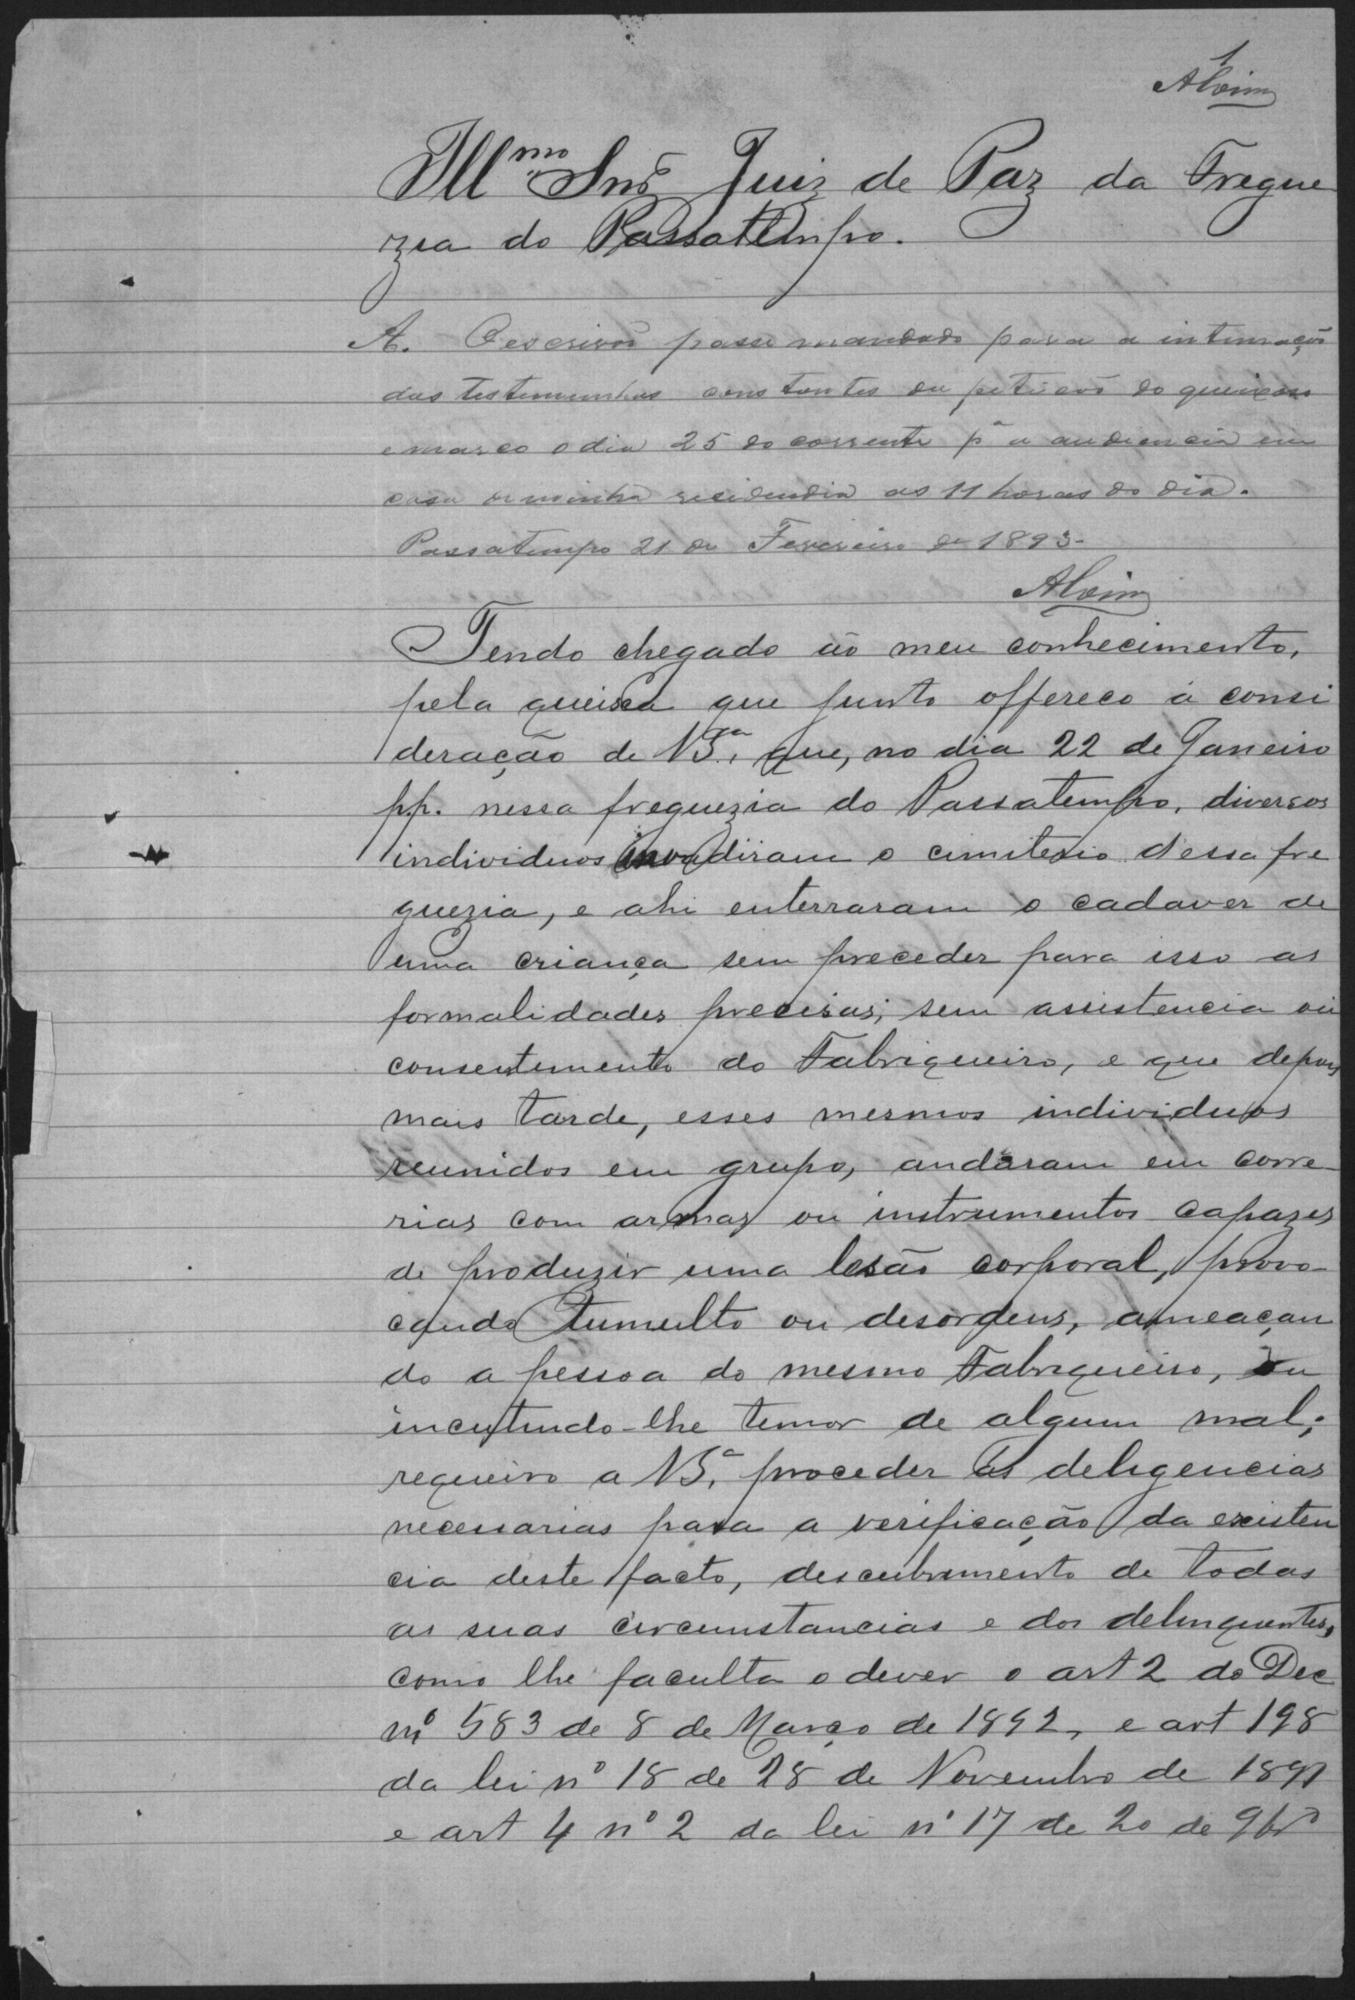 1
Alvim
Illmo Snr Juiz de Paz da Fregue
zia do Passatempo.
A. O escrivão passe mandado para a intimação
das testemunhas constantes da petição do queixoso
e marco o dia 25 do corrente pa a audiencia em
casa de minha residendia as 11 horas do dia.
Passatempo 21 de Fevereiro de 1893.
Alvim
Tendo chegado ao meu conhecimento,
pela queixa que junto offereco á consi
deração de VSa. que, no dia 22 de Janeiro
pp. nessa freguezia do Passatempo, diversos
individuos invadiram o cimiterio d'essa fre
guezia, e ahi enterraram o cadaver de
uma criança sem preceder para isso as
formalidades precisas; sem assistencia ou
consentimento do Fabriqueiro, e que depois
mais tarde, esses mesmos individuos
reunidos em grupo, andaram em corre-
rias com armas ou instrumentos capazes
de produzir uma lesão corporal, provo-
cando tumulto ou desordens, ameaçan
do a pessoa do mesmo Fabriqueiro, ou
incutindo-lhe temor de algum mal;
requeiro a VSa. proceder ás deligencias
necessarias para a verificação da existen
cia deste facto, descubrimento de todas
as suas circumstancias e dos delinquentes,
como lhe faculta o dever o art 2 do Dec
nº 583 de 8 de Março de 1892, e art 198
da lei nº 18 de 28 de Novembro de 1891
e art 4 nº 2 da lei nº 17 de 20 de 9bro